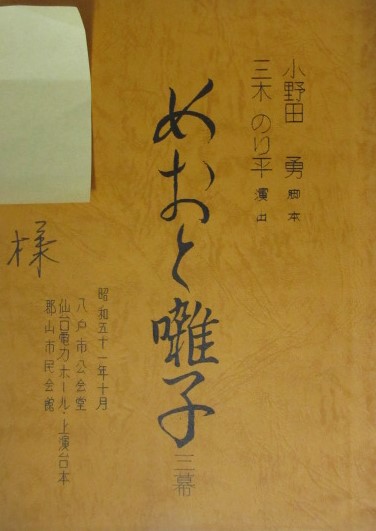 小野田 勇 脚本
三木 のり平 演出
めおと囃子 三幕
昭和五十一年十月
八戸市公会堂
仙台電力ホール・上演台本
郡山市民会館
様